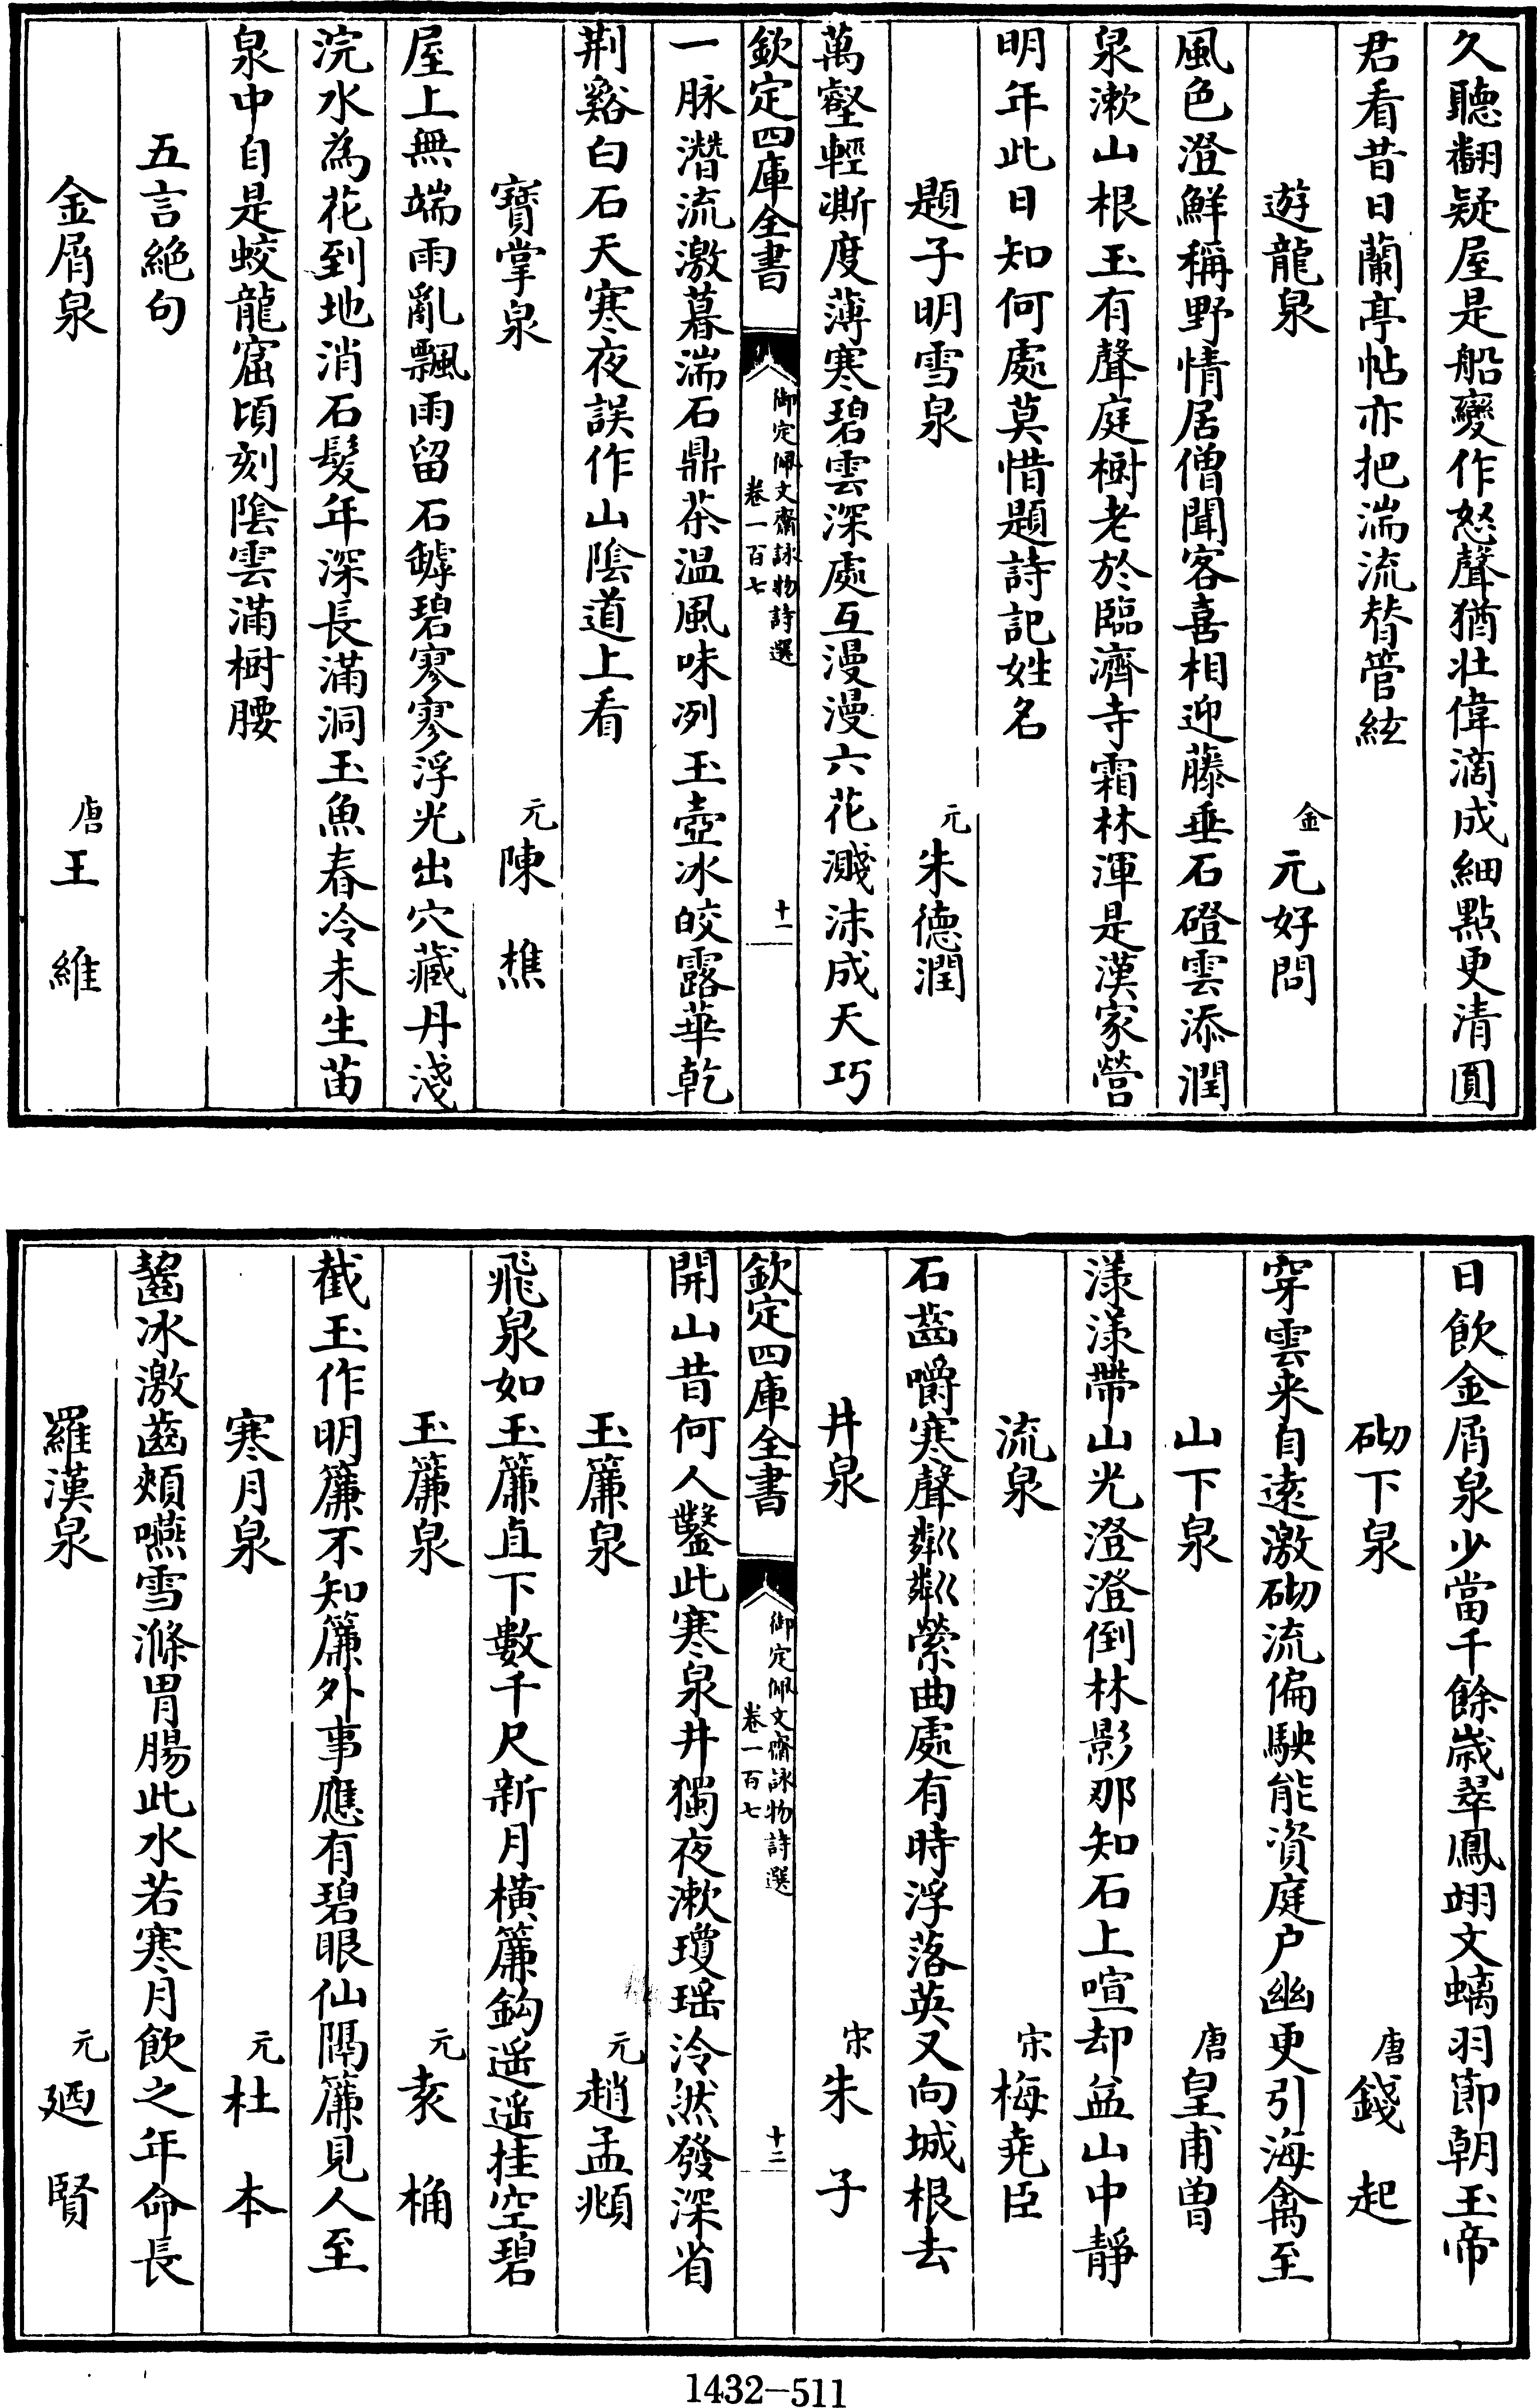 久聽翻疑屋是船變作怒聲猶壯偉滴成細點更清圓
君看昔日蘭亭帖亦把湍流替管絃
遊龍泉 金 元好問
風色澄鮮稱野情居僧聞客喜相迎藤垂石磴雲添潤
泉漱山根玉有聲庭樹老於臨濟寺霜林渾是漢家營
明年此日知何處莫惜題詩記姓名
題子明雪泉 元 朱德潤
萬壑輕澌度薄寒碧雲深處互漫漫六花濺沫成天巧
欽定四庫全書 御定佩文齋詠物詩選 卷一百七 十一
一脉潛流激暮湍石鼎茶溫風味冽玉壺冰皎露華乾
荆谿白石天寒夜誤作山陰道上看
寶掌泉 元 陳樵
屋上無端雨亂飄雨留石罅碧寥寥浮光出穴藏丹淺
浣水為花到地消石髮年深長滿洞玉魚春冷未生苗
泉中自是蛟龍窟頃刻陰雲滿樹腰
五言絕句
金屑泉 唐 王維
日飲金屑泉少當千餘歲翠鳳翊文螭羽節朝玉帝
砌下泉 唐 錢起
穿雲来自遠激砌流偏駛能資庭户幽更引海禽至
山下泉 唐 皇甫曾
漾漾帶山光澄澄倒林影那知石上喧却益山中靜
流泉 宋 梅堯臣
石齒嚼寒聲粼粼縈曲處有時浮落英又向城根去
井泉 宋 朱子
欽定四庫全書 御定佩文齋詠物詩選 卷一百七 十二
開山昔何人鑿此寒泉井獨夜漱瓊瑶泠然發深省
玉簾泉 元 趙孟頫
飛泉如玉簾直下數千尺新月橫簾鈎遥遥挂空碧
玉簾泉 元 袁桷
截玉作明簾不知簾外事應有碧眼仙隔簾見人至
寒月泉 元 杜本
齧冰激齒頰嚥雪滌胃腸此水若寒月飲之年命長
羅漢泉 元 廼賢
1432-511